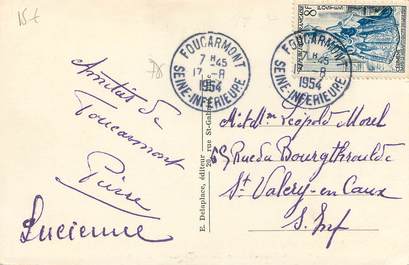 15 €
FOUCARMONT
7 H45
17 -8
1954
SEINE-INFERIEURE
FOUCARMONT
7 H45
17 -8
1954
SEINE-INFERIEURE
8F
POSTES
Amitiés de
Foucarmont
Pierre
Lucienne
E. Delaplace, éditeur
20, rue St-Gabriel
M et Mme Léopold Morel
Rue du Bourgthroulde
St Valery-en Caux
S. Inf